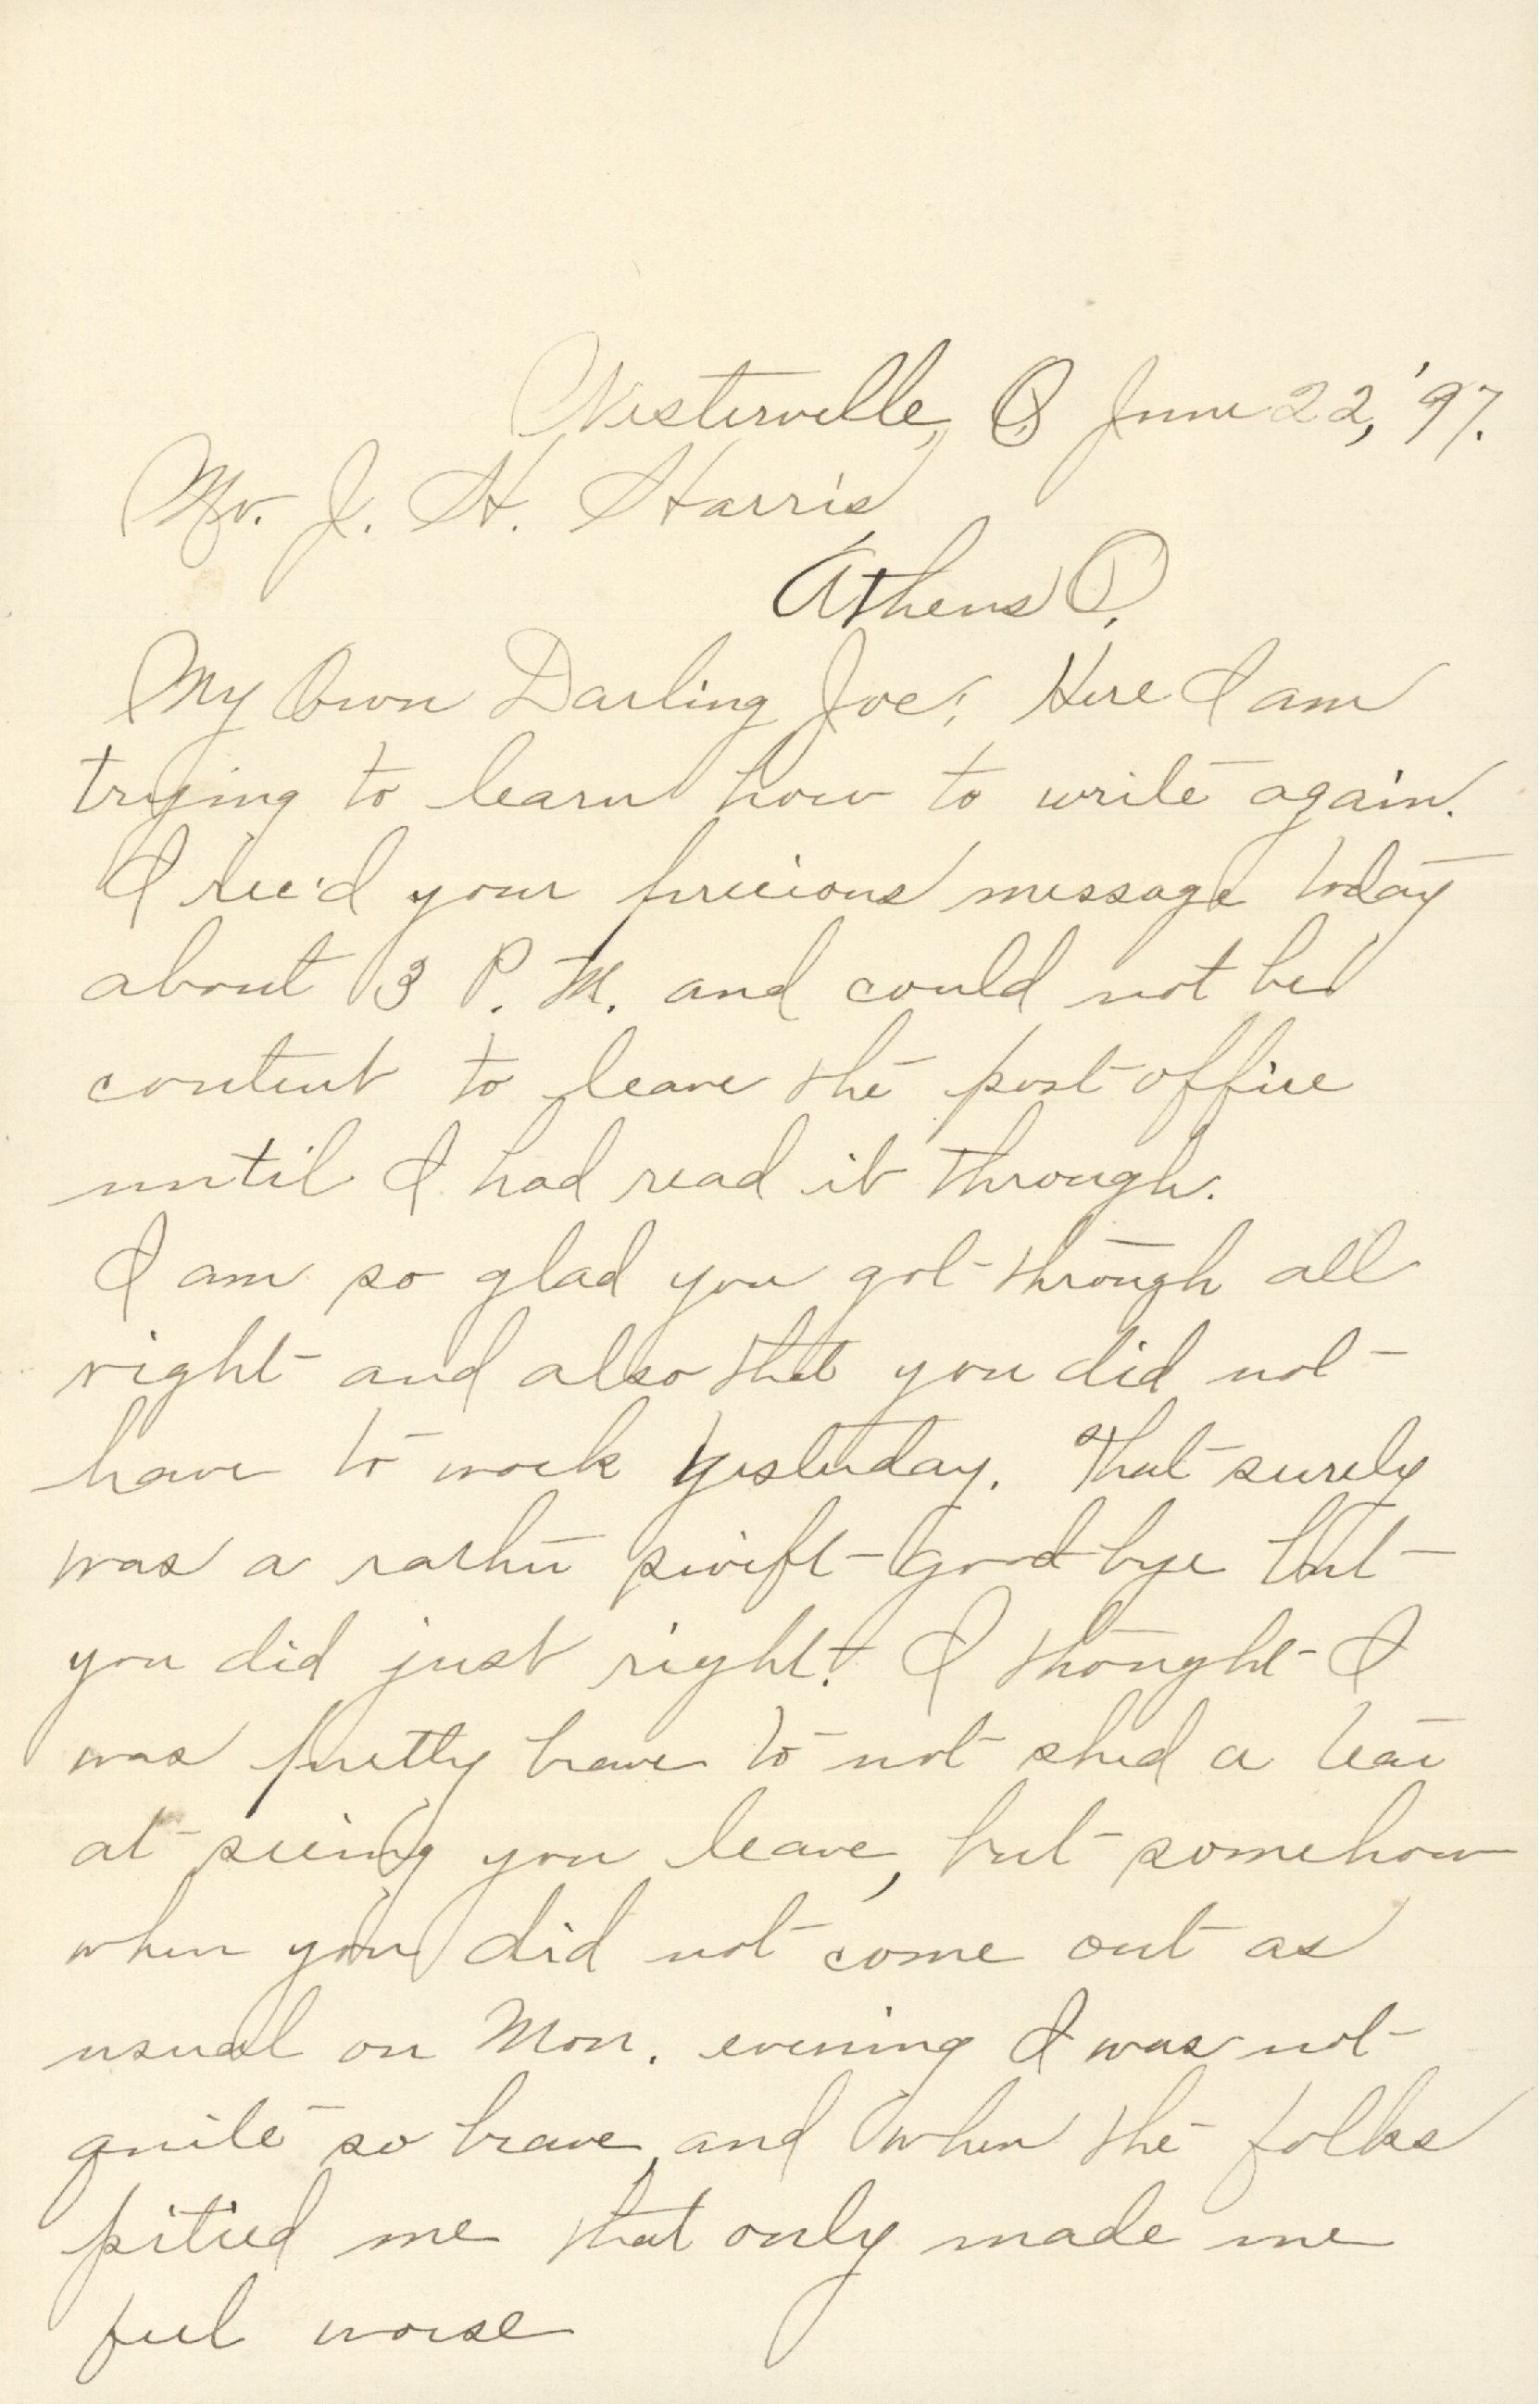 Westerville, O. June 22, '97.
Mr. J. H. Harris,
Athens O.
My Own Darling Joe: Here I am
trying to learn how to write again.
I rec'd your precious message today
about 3 P. M. and could not be
content to leave the post office
until I had read it through.
I am so glad you got through all
right and also that you did not
have to work yesterday. That surely
was a rather swift good bye but
you did just right. I thought I
was pretty brave to not shed a tear
at seeing you leave, but somehow
when you did not come out as
usual on Mon. evening I was not
quite so brave, and when the folks
pitied me that only made me
feel worse